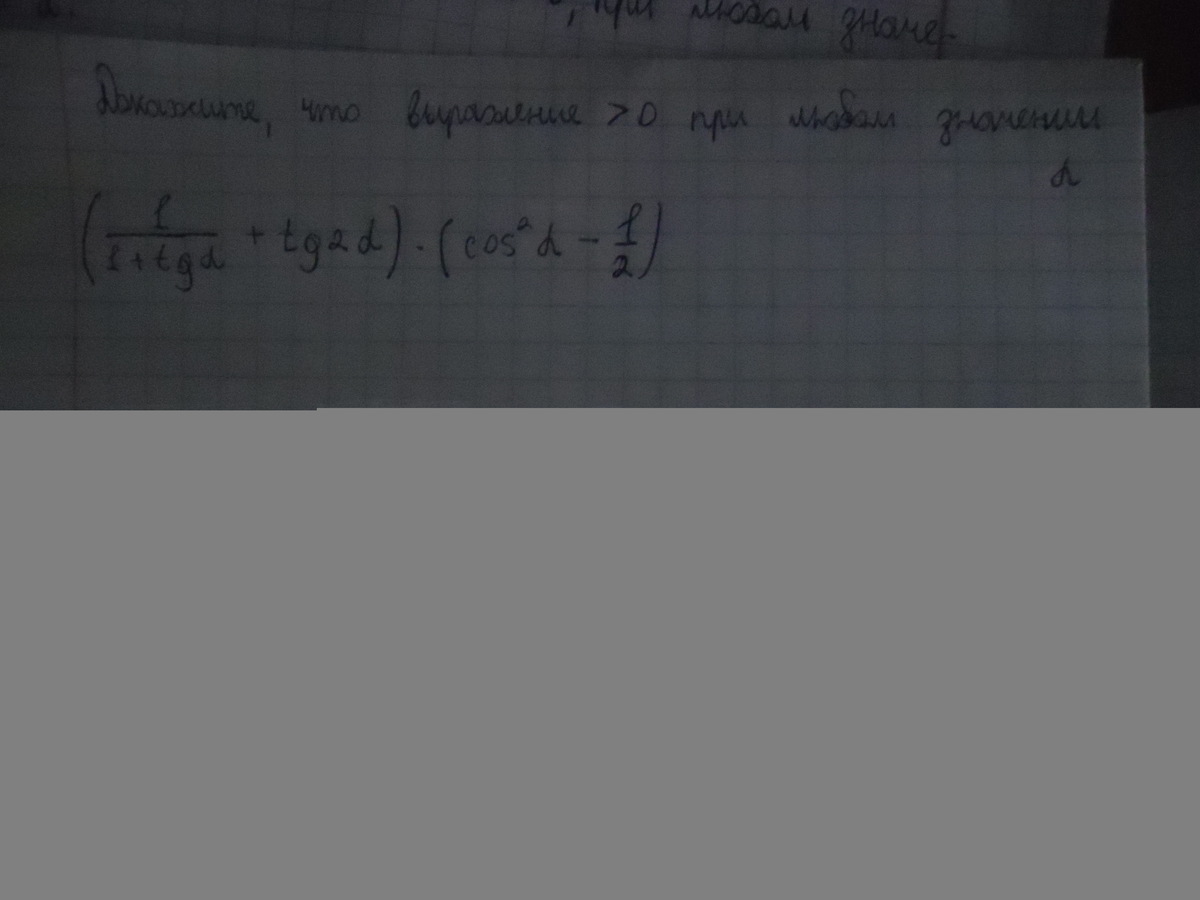 , при любом значе-
Докажите, что выражение >0 при любом значении
α
(1/(1+tgα) + tg2α) · (cos²α - 1/2)